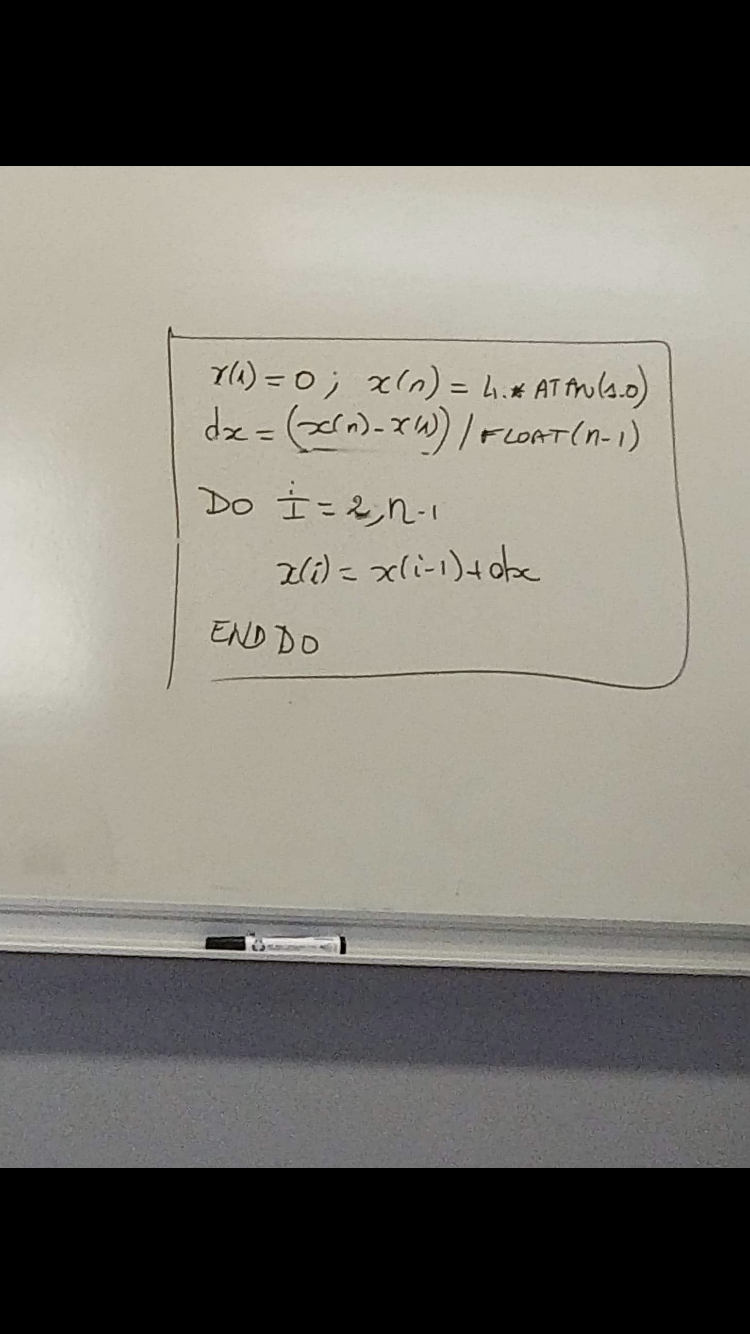 x(1) = 0 ; x(n) = 4.* ATAN(1.0)
dx = (x(n) - x(1)) / FLOAT(n-1)
DO i = 2, n-1
x(i) = x(i-1) + dx
END DO